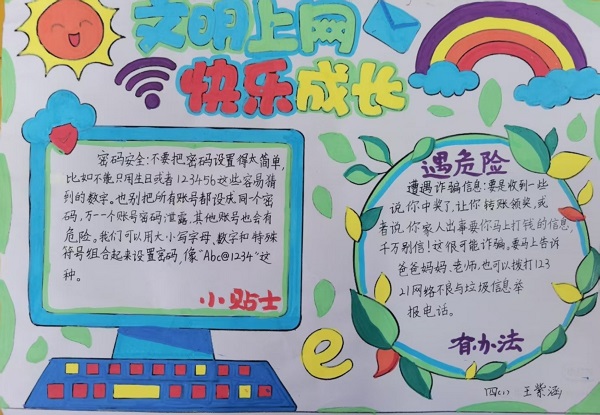 文明上网
快乐成长
密码安全:不要把密码设置得太简单,
比如不能只用生日或者123456这些容易猜
到的数字。也别把所有账号都设成同个密
码,万一个账号密码泄露,其他账号也会有
危险。我们可以用大小写字母、数字和特殊
符号组合起来设置密码,像"Abc@1234"这
种。
小贴士
遇危险
遭遇诈骗信息:要是收到一些
说你中奖了,让你转账领奖,或
者说你家人出事要你马上打钱的信息,
千万别信!这很可能诈骗。要马上告诉
爸爸妈妈、老师,也可以拨打123
21网络不良与垃圾信息举
报电话。
有办法
e
四(1) 王紫涵